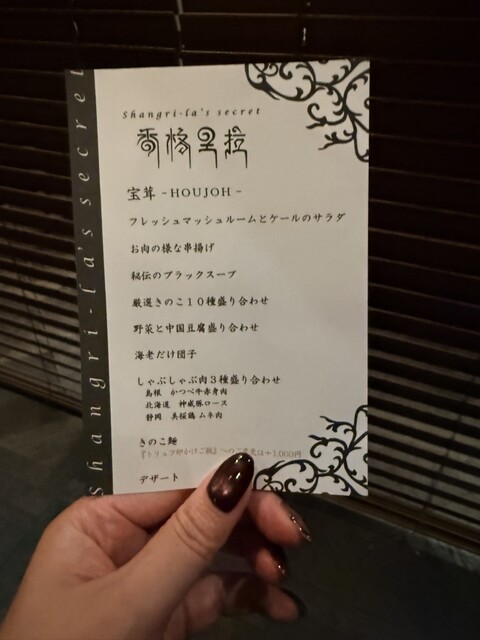 Shangri-la's secret
香格里拉
宝茸 -HOUJOH-
フレッシュマッシュルームとケールのサラダ
お肉の様な串揚げ
秘伝のブラックスープ
厳選きのこ10種盛り合わせ
野菜と中国豆腐盛り合わせ
海老だけ団子
しゃぶしゃぶ肉3種盛り合わせ
島根 かつべ牛赤身肉
北海道 神威豚ロース
静岡 美桜鶏 ムネ肉
きのこ麺
『トリュフ卵かけご飯』へのご変更は+1,000円
デザート
shangri-la's secret